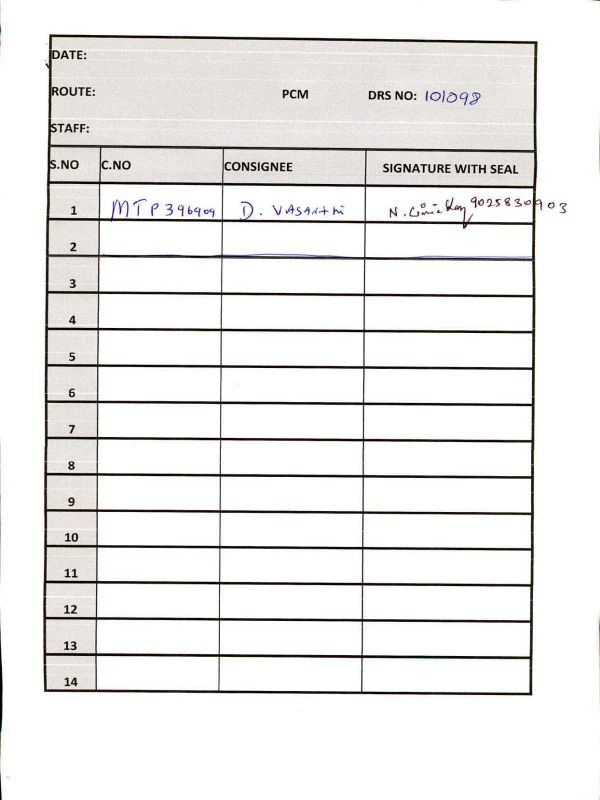 DATE:
ROUTE: PCM DRS NO: 101098
STAFF:
S.NO C.NO CONSIGNEE SIGNATURE WITH SEAL
1 MTP396909 D. VASANTHI N. 9025830903
2
3
4
5
6
7
8
9
10
11
12
13
14